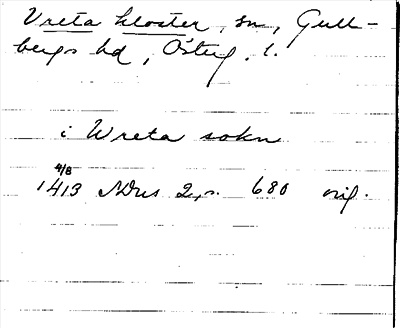 Vreta kloster, sn, Gull-
bergs hd, Österg. l.
i Wreta sokn
4/8
1413 NDvs 2, s. 680 orig.